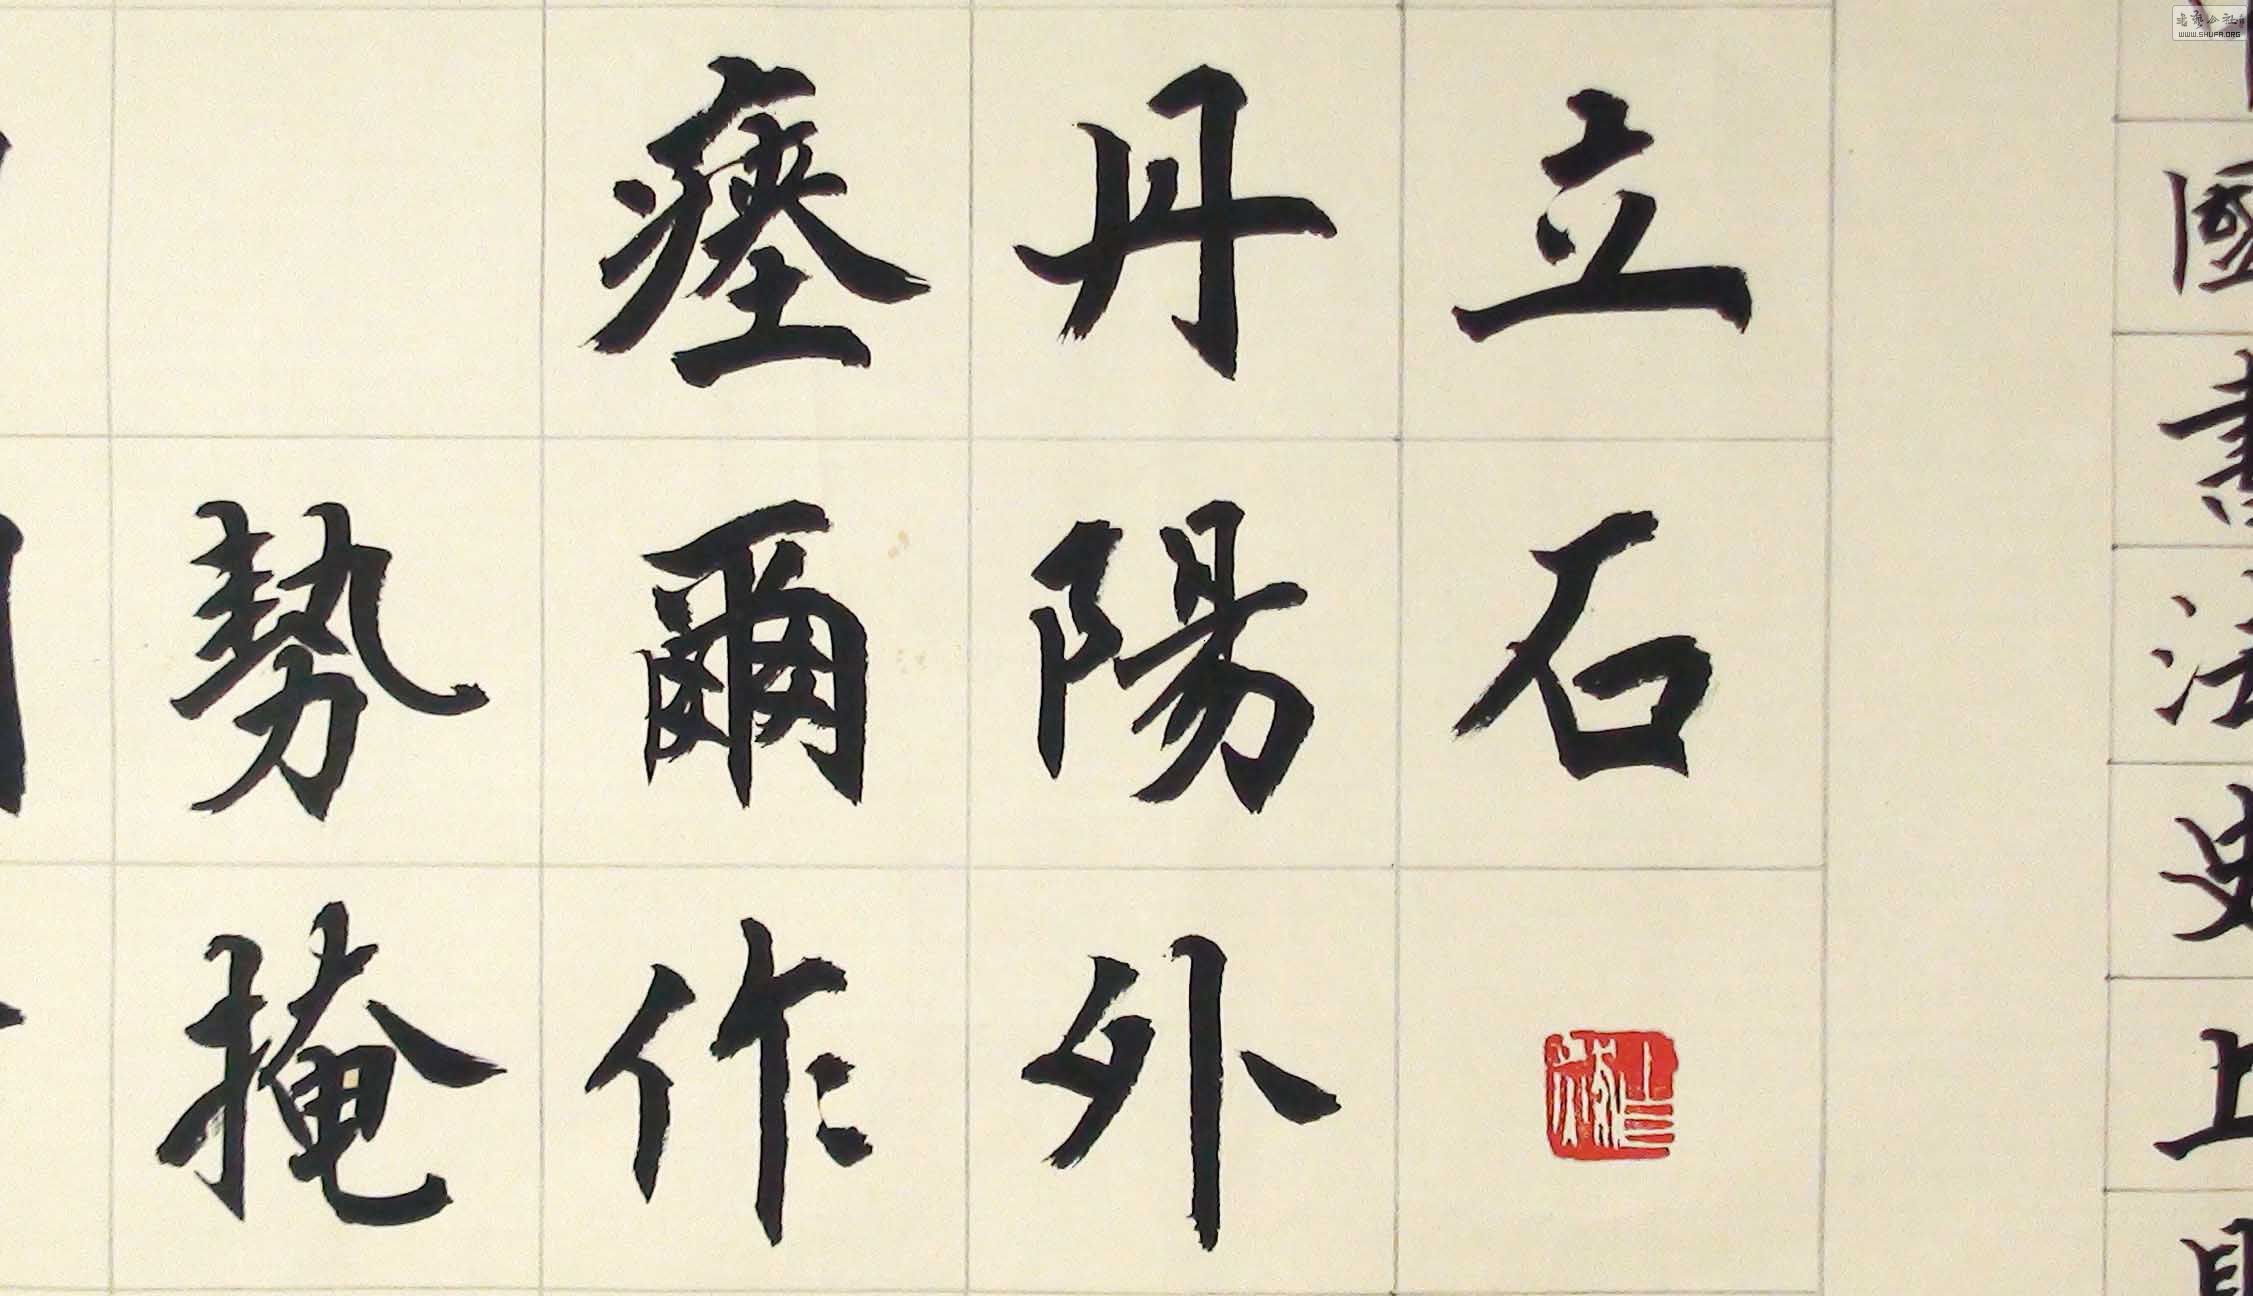 國書法史上
立石
丹陽外
瘞爾作
勢掩
書藝公社
WWW.SHUFA.ORG